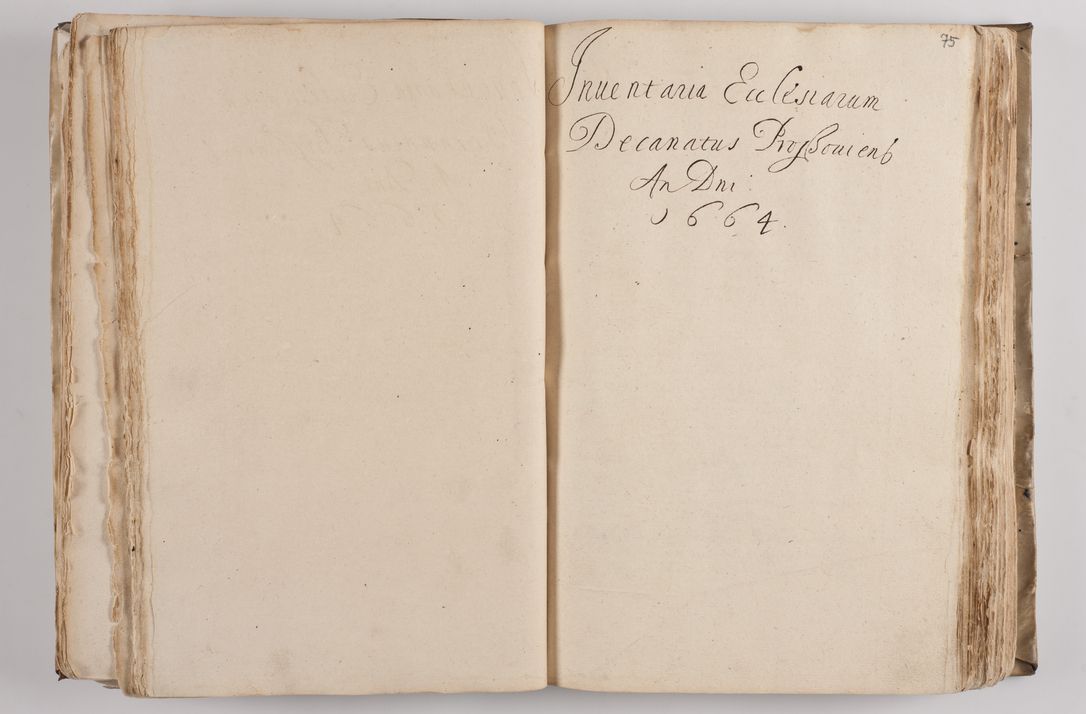 75
Inuentaria Ecclesiarum
Decanatus Prosßouienß
An Dni
1664.